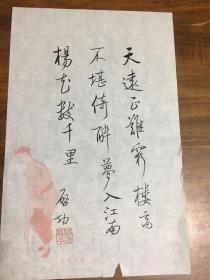 天遠正難窮樓高
不堪倚醉夢入江南
楊花數千里
啟功